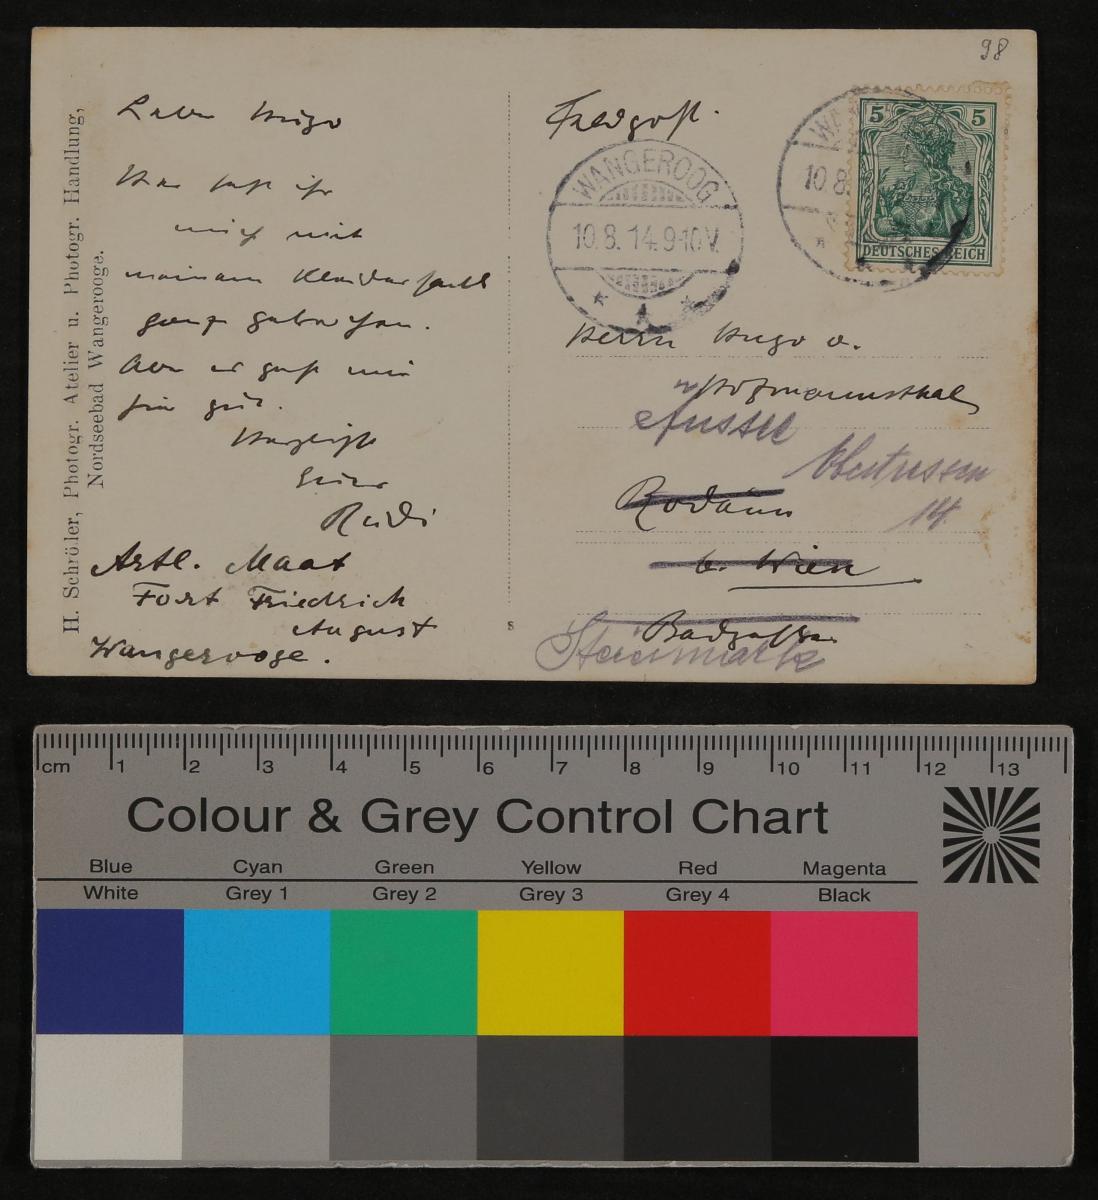 98
H. Schröller, Photogr. Atelier u. Photogr. Handlung,
Nordseebad Wangerooge.
Lieber Hugo
hier seht ihr
mich mit
meinem
ganz
Aber es geht mir
sehr gut.
Herzlichst
Euer
Rudi
Artl. Maat
Fort Friedrich
August
Wangerooge.
Feldpost.
WANGEROOG
10.8.14.9-10V.
WA
10.8.
5 5
DEUTSCHES REICH
Herrn Hugo v.
Hofmannsthal
Aussee
Obertressen
14.
Rodaun
b. Wien
Badgasse
Steiermark
8
cm 1 2 3 4 5 6 7 8 9 10 11 12 13
Colour & Grey Control Chart
Blue Cyan Green Yellow Red Magenta
White Grey 1 Grey 2 Grey 3 Grey 4 Black